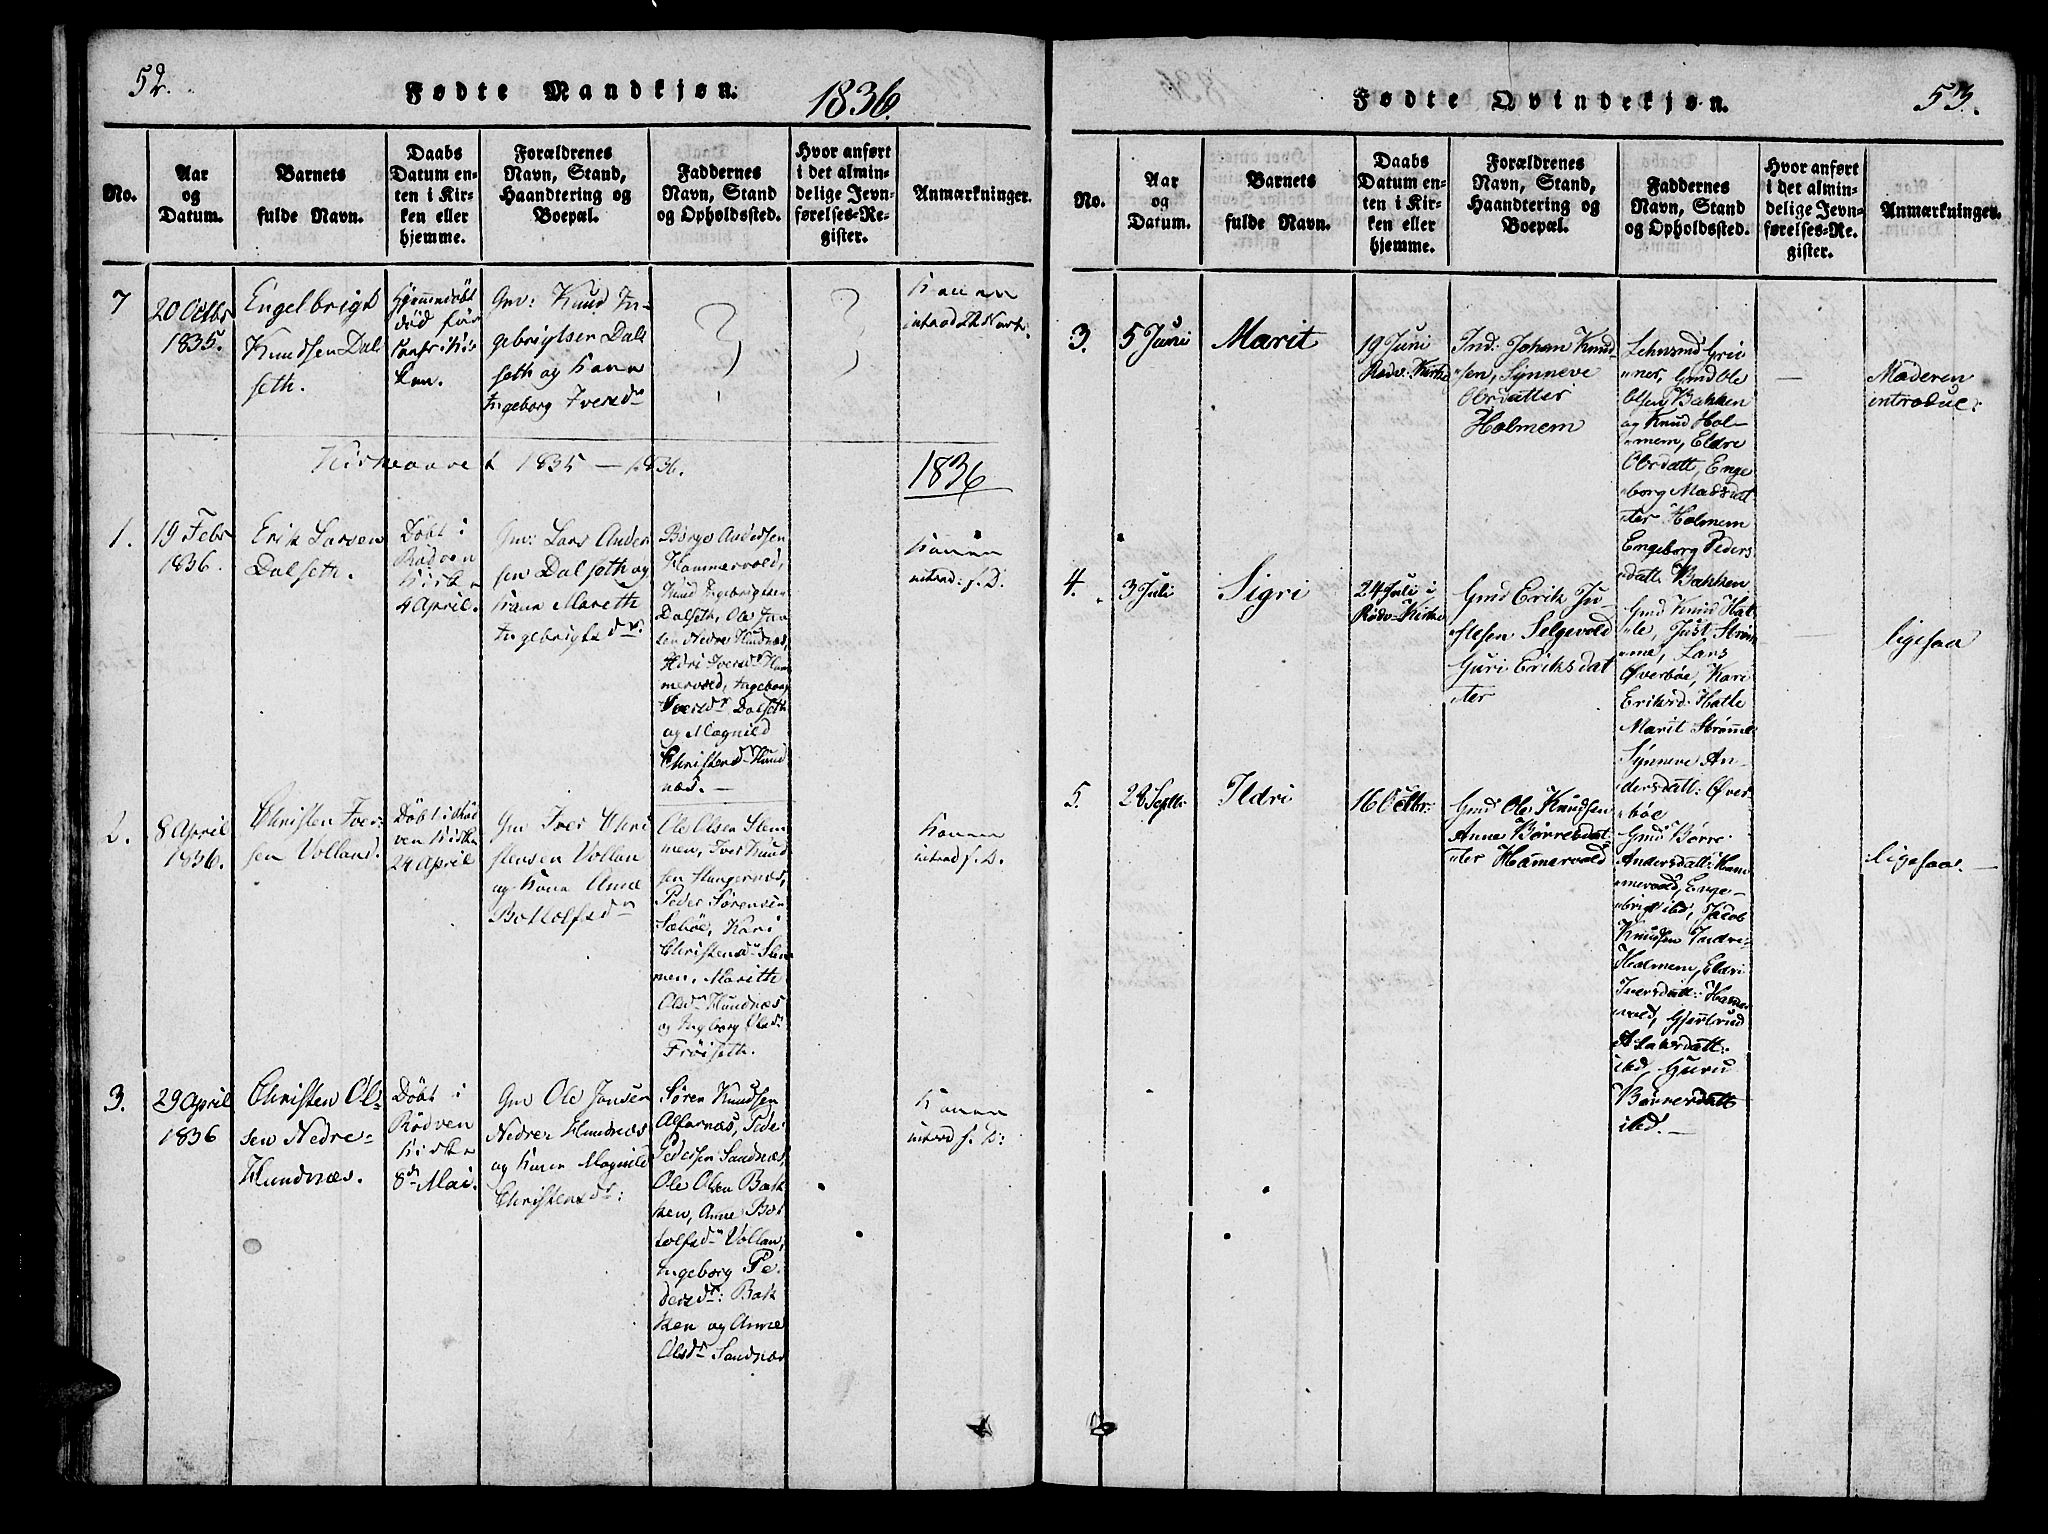 52.
Fødte Mandkjøn.
1836.
No.
Aar
og
Datum.
Barnets
fulde Navn.
Daabs
Datum en-
ten i Kir-
ken eller
hjemme.
Forældrenes
Navn, Stand,
Haandtering og
Boepæl.
Faddernes
Navn, Stand
og Opholdssted.
Hvor anført
i det almin-
delige Jevn-
førelses-Re-
gister.
Anmærkninger.
7
20 Octbr
1835.
Engelbrigt
Knudsen Dal
seth.
Hjemmedøbt
død før
i Kir
ken.
Gm: Knud In-
gebrigtsen Dal
seth og Kone
Ingeborg Iversdr
?
?
Konen
Kirkeaaret 1835 — 1836.
1836
1.
19 Febr
1836.
Erik Larsen
Dalseth.
Døbt i
Rødven
Kirke
4 April.
Gm: Lars Ander
sen Dalseth og
Kone Mareth
Ingebrigtsdr.
Børge Andersen
Hammervold,
Knud Ingebrigtsen
Dalseth, Ole Jon
sen Nedre Hundnæs,
Ildri Iversdr Ham
mervold, Ingeborg
Iversdr Dalseth
og Magnild
Christensdr Hund
næs. —
Konen
introd: s. D.
2.
8 April
1836.
Christen Iver-
sen Volland.
Døbt i Rød
ven Kirke
24 April
Gm Iver Chri
stensen Vollan
og Kone Anne
Bottolfsdr
Ole Olsen Slem
men, Iver Knud
sen Slungernæs,
Peder Sørensen
Sæbøe, Kari
Christensdr Slem
men, Marithe
Olsdr Hundnæs
og Ingeborg Olsdr
Frøiseth.
Konen
introd s. D.
3.
29 April
1836
Christen Ol-
sen Nedre-
Hundnæs.
Døbt i
Rødven
Kirke
8de Mai.
Gm Ole Jonsen
Nedre Hundnæs
og Kone Magnild
Christensdr:
Søren Knudsen
Alfarnæs, Peder
Pedersen Sandnæs,
Ole Olsen Bak
ken, Anne Bot
tolfsdr Vollan,
Ingeborg Pe
dersdr: Bak
ken og Anne
Olsdr Sandnæs
Konen
introd s. D:
53.
Fødte Qvindekjøn.
No.
Aar
og
Datum.
Barnets
fulde Navn.
Daabs
Datum en-
ten i Kir-
ken eller
hjemme.
Forældrenes
Navn, Stand,
Haandtering og
Boepæl.
Faddernes
Navn, Stand
og Opholdssted.
Hvor anført
i det almin-
delige Jevn-
førelses-Re-
gister.
Anmærkninger.
3.
5 Juni
Marit
19 Juni
Rødv: Kirke
Ind: Johan Knud
sen, Synneve
Olsdatter
Holmem
Lehnsmd Gri
ner, Gmd Ole
Olsen Bakken
og Knud Hol-
mem, Eldre
Olsdatt, Enge
borg Madsdat
ter Holmem
Engeborg Peders
datt. Bakken
—
Moderen
introduc:
4.
3 Juli
Sigri
24 Juli i
Rødv- Kirke
Gmd Erik Ju-
stesen Selgevold
Guri Eriksdat
ter
Gmd Knud Hat
le, Just Strøm
me, Lars
Øverbøe, Kari
Eriksd: Hatle
Marit Strømme
Synneve An-
dersdatt: Øver
bøe
ligesaa
5.
28 Septbr:
Ildri
16 Octbr:
Gmd Ole Knudsen
Anne Børresdat
ter Hamervold
Gmd Børre
Andersdatt: Ham
mervold, Enge-
brigt ibd, Jacob
Knudsen Indre-
Holmem, Eldri
Iversdatt: Hamer
vold, Gjertrud
Aslaksdatt:
ibd, Guru
Børresdatt
ibd. —
ligesaa. —